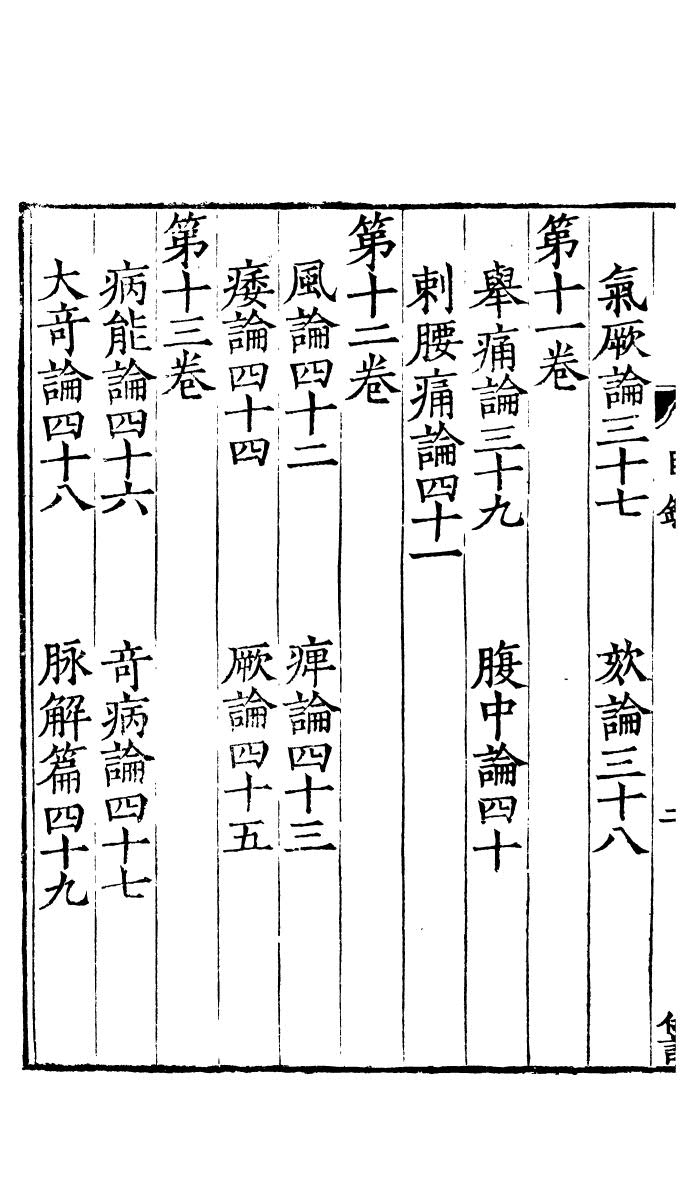 氣厥論三十七　欬論三十八
第十一卷
舉痛論三十九　腹中論四十
刺腰痛論四十一
第十二卷
風論四十二　痺論四十三
痿論四十四　厥論四十五
第十三卷
病能論四十六　奇病論四十七
大奇論四十八　脉解篇四十九